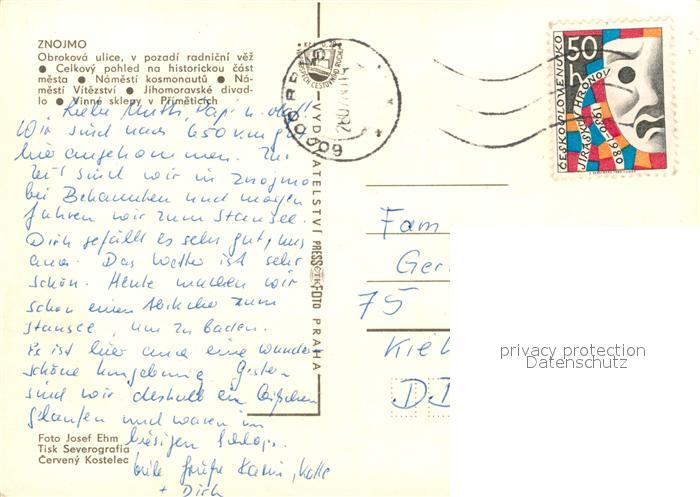 ZNOJMO
Obroková ulice, v pozadí radniční věž
● Celkový pohled na historickou část
města ● Náměstí kosmonautů ● Ná-
městí Vítězství ● Jihomoravské divad-
lo ● Vinné sklepy v Příměticích
Liebe Mutti, Papi u.
Wir sind nach 650 km gut
hier angekommen. Zur
Zeit sind wir in Znojmo
bei Bekannten und morgen
fahren wir zum Stausee.
Dirk gefällt es sehr gut, uns
auch. Das Wetter ist sehr
schön. Heute machen wir
schon einen Abstecher zum
Stausee, um zu baden.
Es ist hier auch eine wunder
schöne Umgebung. Gestern
sind wir deshalb ein bißchen
gelaufen und waren im
hiesigen Schloß.
Viele Grüße Karin, Kalle
+ Dirk
Foto Josef Ehm
Tisk Severografia
Červený Kostelec
VYDAVATELSTVÍ PRESSFOTO PRAHA
ČESKOSLOVENSKO
50 h
JIRÁSKŮV HRONOV
1930-1980
Fam
Ger
75
Kiel
DD
privacy protection
Datenschutz